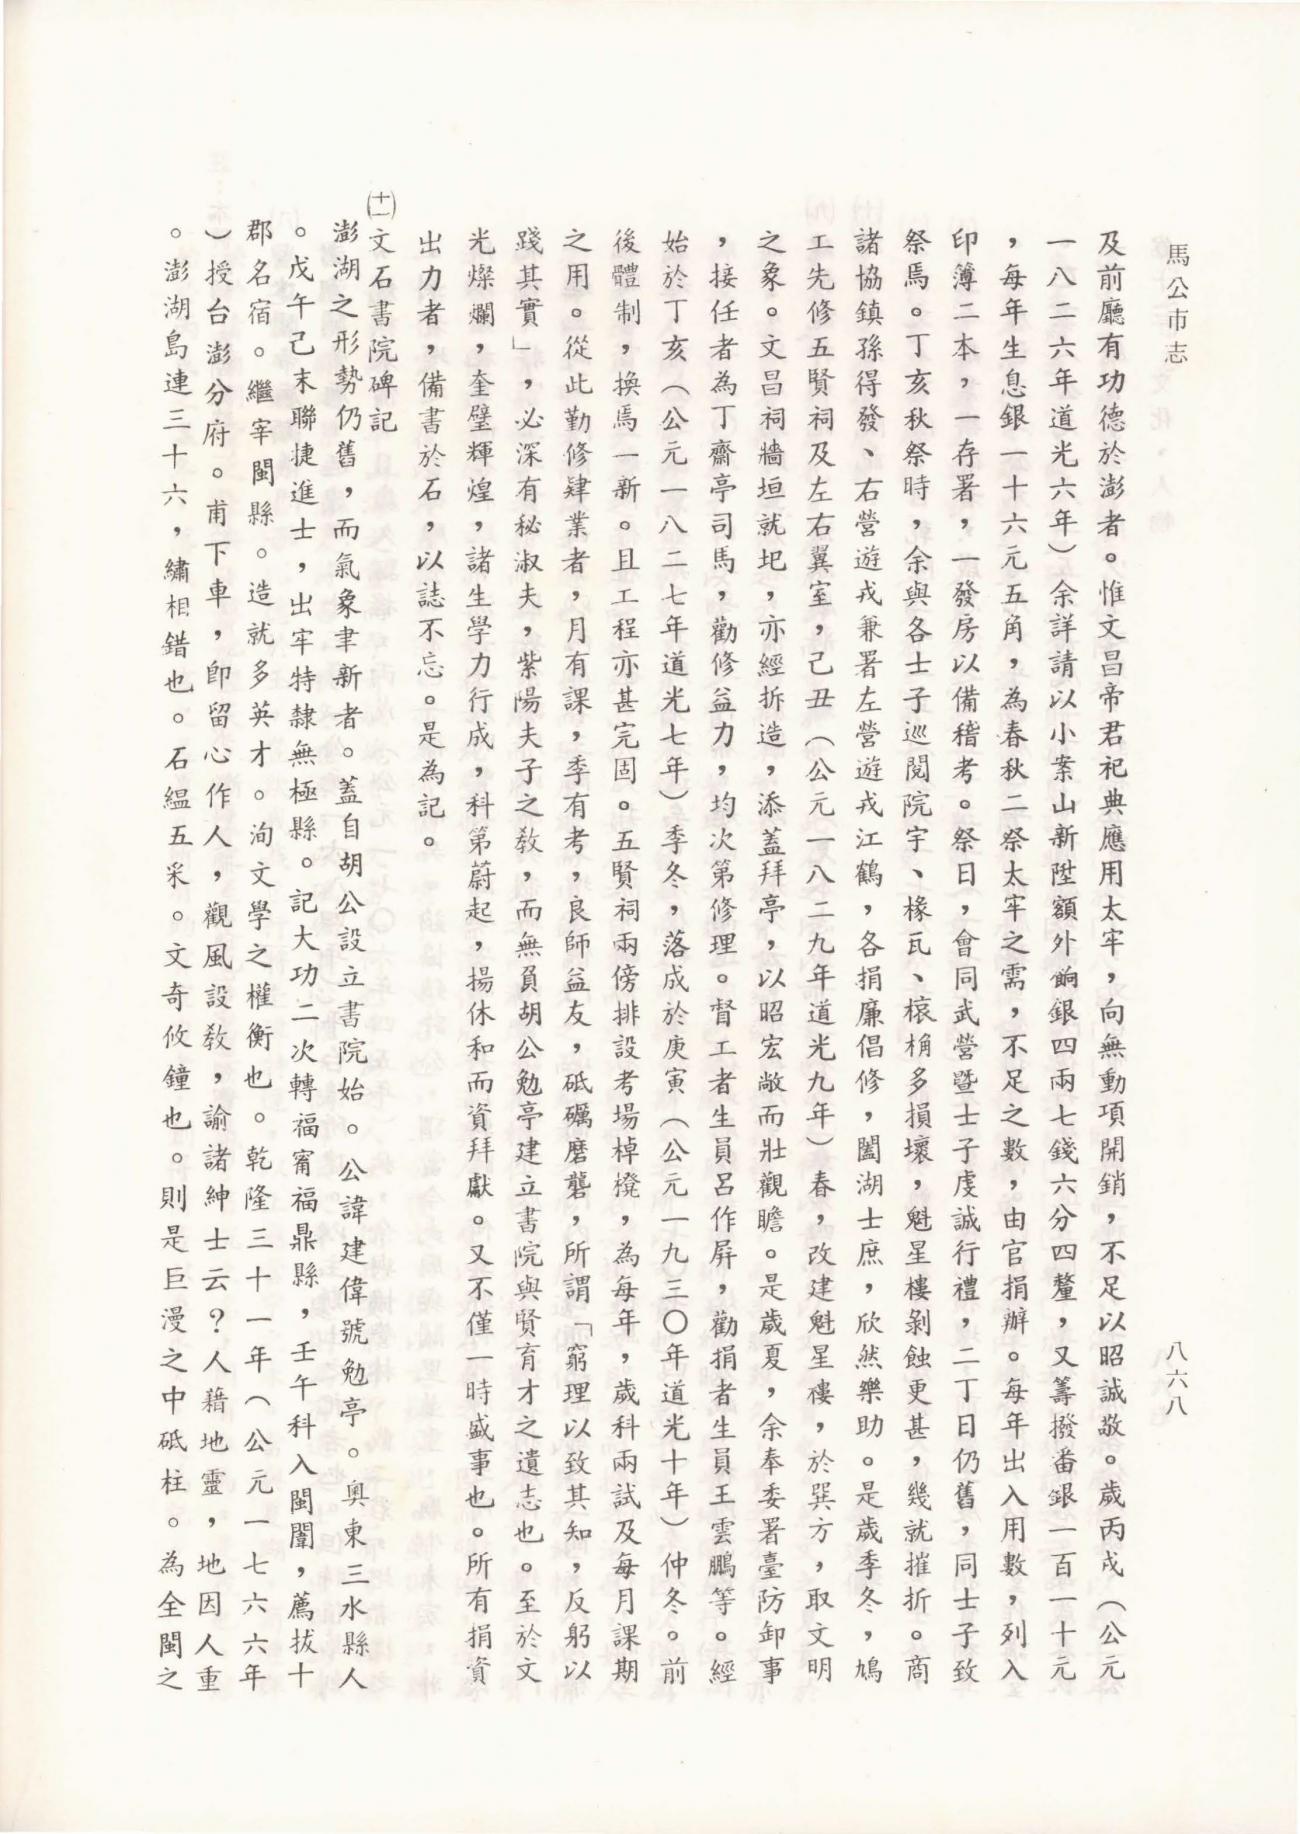 馬公市志
八六八
及前廳有功德於澎者。惟文昌帝君祀典應用太牢，向無動項開銷，不足以昭誠敬。歲丙戌（公元
一八二六年道光六年）余詳請以小案山新陞額外餉銀四兩七錢六分四釐，又籌撥番銀一百一十元
，每年生息銀一十六元五角，為春秋二祭太牢之需，不足之數，由官捐辦。每年出入用數，列入
印簿二本，一存署，一發房以備稽考。祭日，會同武營暨士子虔誠行禮，二丁日仍舊，同士子致
祭焉。丁亥秋祭時，余與各士子巡閱院宇、椽瓦、榱桷多損壞，魁星樓剝蝕更甚，幾就摧折。商
諸協鎮孫得發、右營遊戎兼署左營遊戎江鶴，各捐廉倡修，闔湖士庶，欣然樂助。是歲季冬，鳩
工先修五賢祠及左右翼室，己丑（公元一八二九年道光九年）春，改建魁星樓，於巽方，取文明
之象。文昌祠牆垣就圯，亦經拆造，添蓋拜亭，以昭宏敞而壯觀瞻。是歲夏，余奉委署臺防卸事
，接任者為丁齋亭司馬，勸修益力，均次第修理。督工者生員呂作屏，勸捐者生員王雲鵬等。經
始於丁亥（公元一八二七年道光七年）季冬，落成於庚寅（公元一九三〇年道光十年）仲冬。前
後體制，換焉一新。且工程亦甚完固。五賢祠兩傍排設考場棹櫈，為每年，歲科兩試及每月課期
之用。從此勤修肄業者，月有課，季有考，良師益友，砥礪磨礱，所謂「窮理以致其知，反躬以
踐其實」，必深有秘淑夫，紫陽夫子之教，而無負胡公勉亭建立書院與賢育才之遺志也。至於文
光燦爛，奎璧輝煌，諸生學力行成，科第蔚起，揚休和而資拜獻。又不僅一時盛事也。所有捐資
出力者，備書於石，以誌不忘。是為記。
㈩文石書院碑記
澎湖之形勢仍舊，而氣象聿新者。蓋自胡公設立書院始。公諱建偉號勉亭。奧東三水縣人
。戊午己末聯捷進士，出牢特隸無極縣。記大功二次轉福甯福鼎縣，壬午科入闈闈，薦拔十
郡名宿。繼宰閩縣。造就多英才。洵文學之權衡也。乾隆三十一年（公元一七六六年
）授台澎分府。甫下車，卽留心作人，觀風設敎，諭諸紳士云？人藉地靈，地因人重
。澎湖島連三十六，繡相錯也。石縕五采。文奇攸鐘也。則是巨漫之中砥柱。為全閩之